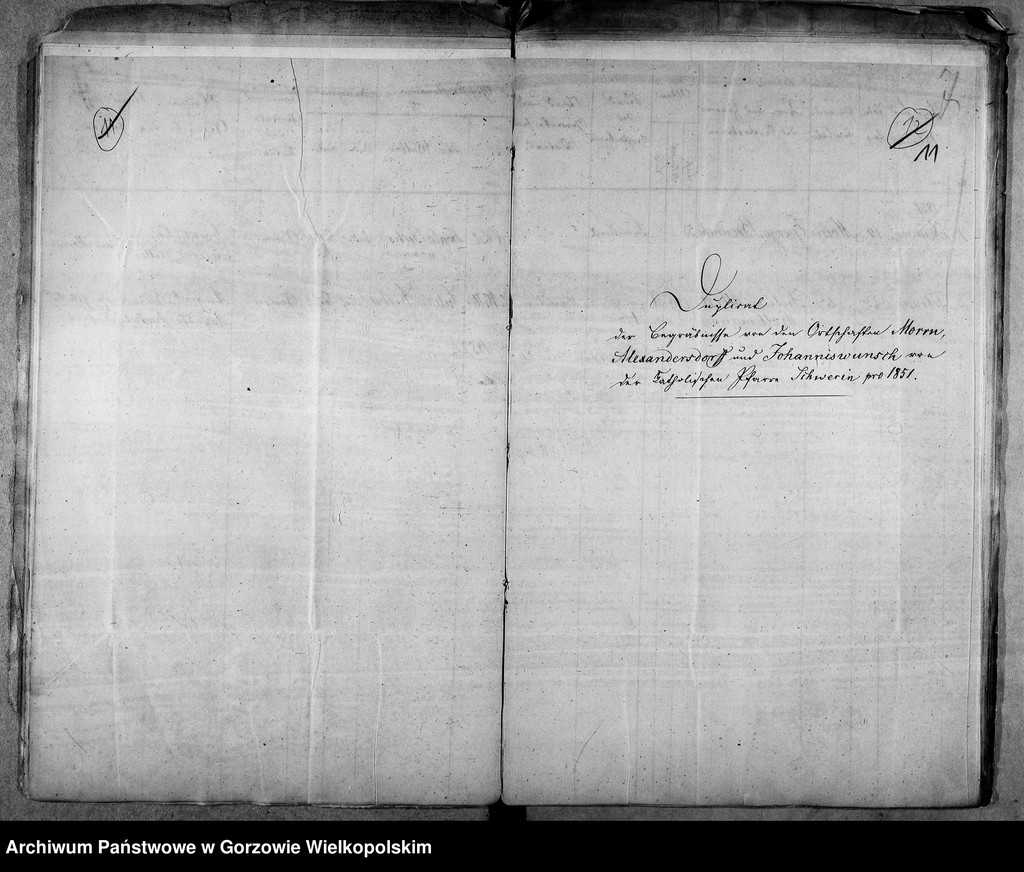 11
12
11
Duplicat
der Begräbnisse von den Ortschaften Morrn,
Alexandersdorff und Johanniswunsch von
der katholischen Pfarre Schwerin pro 1851.
Archiwum Państwowe w Gorzowie Wielkopolskim